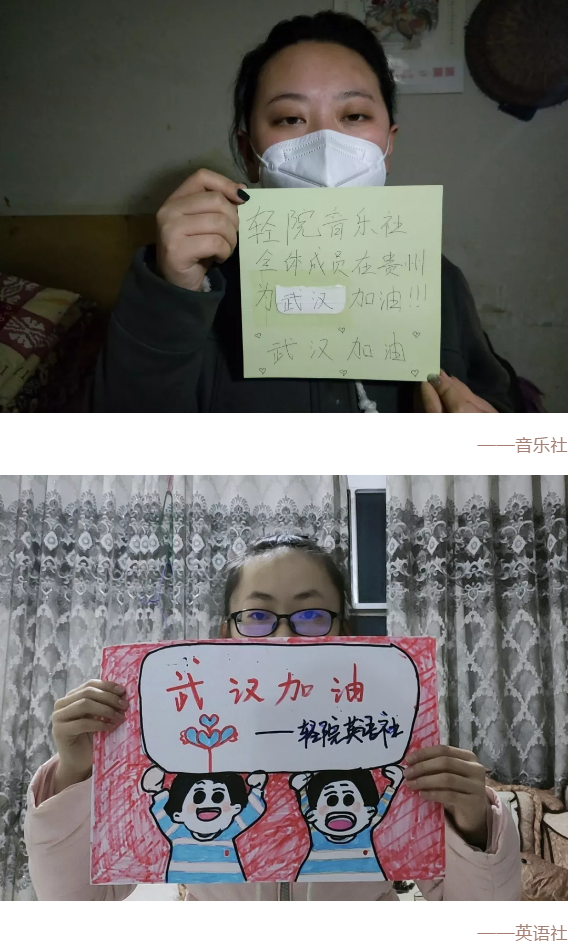 轻院音乐社
全体成员在贵州
为武汉加油!!!
武汉加油
——音乐社
武汉加油
——轻院英语社
——英语社